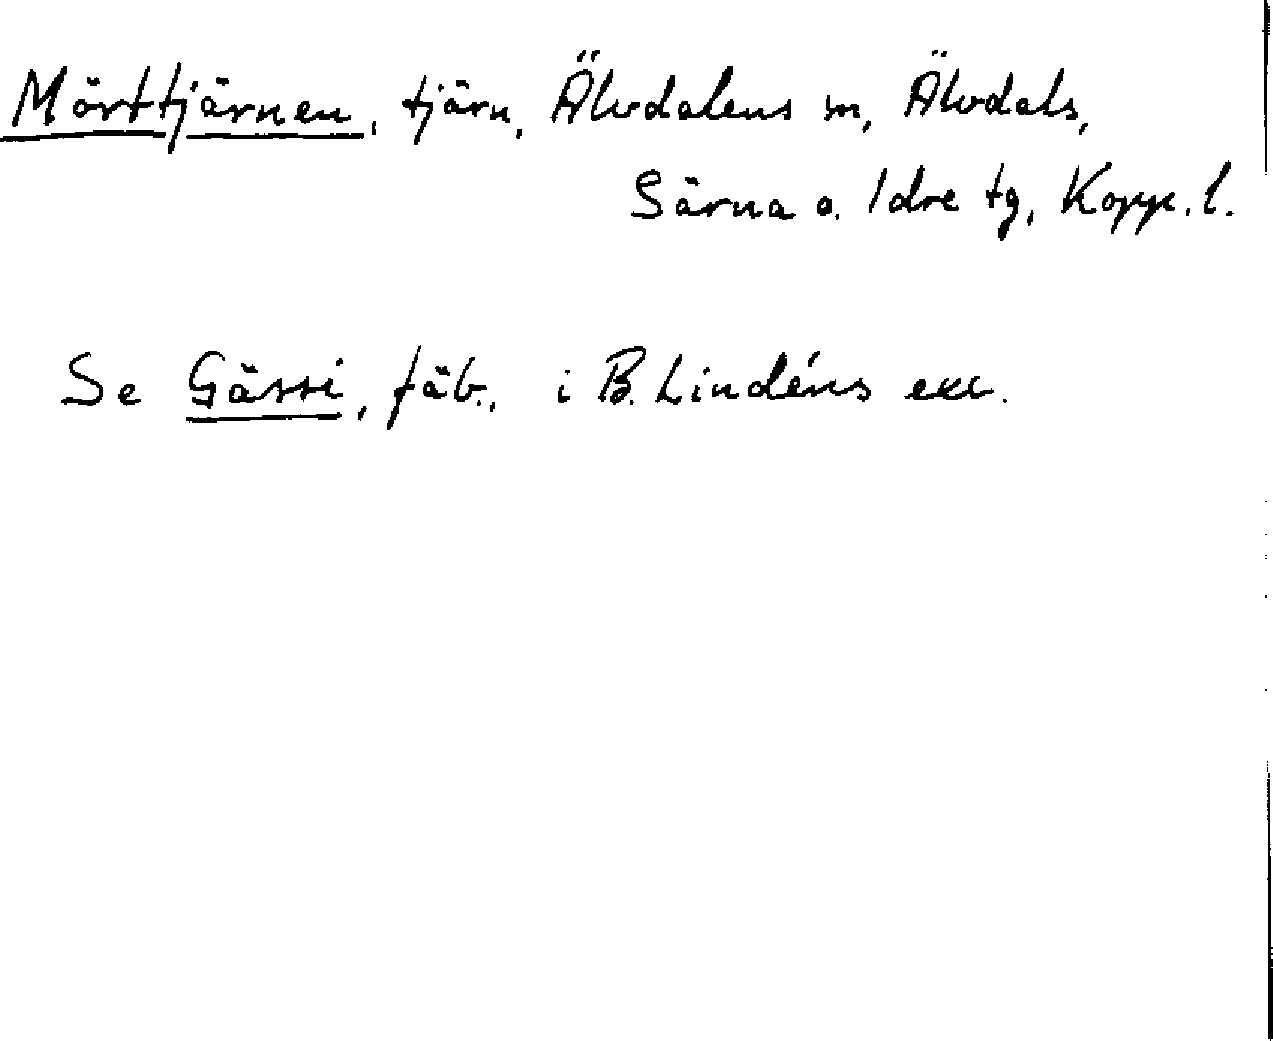 Mörttjärnen, tjärn, Älvdalens sn, Älvdals,
Särna o. Idre tg, Kopp. l.
Se Gässi, fäb., i B. Lindéns exc.